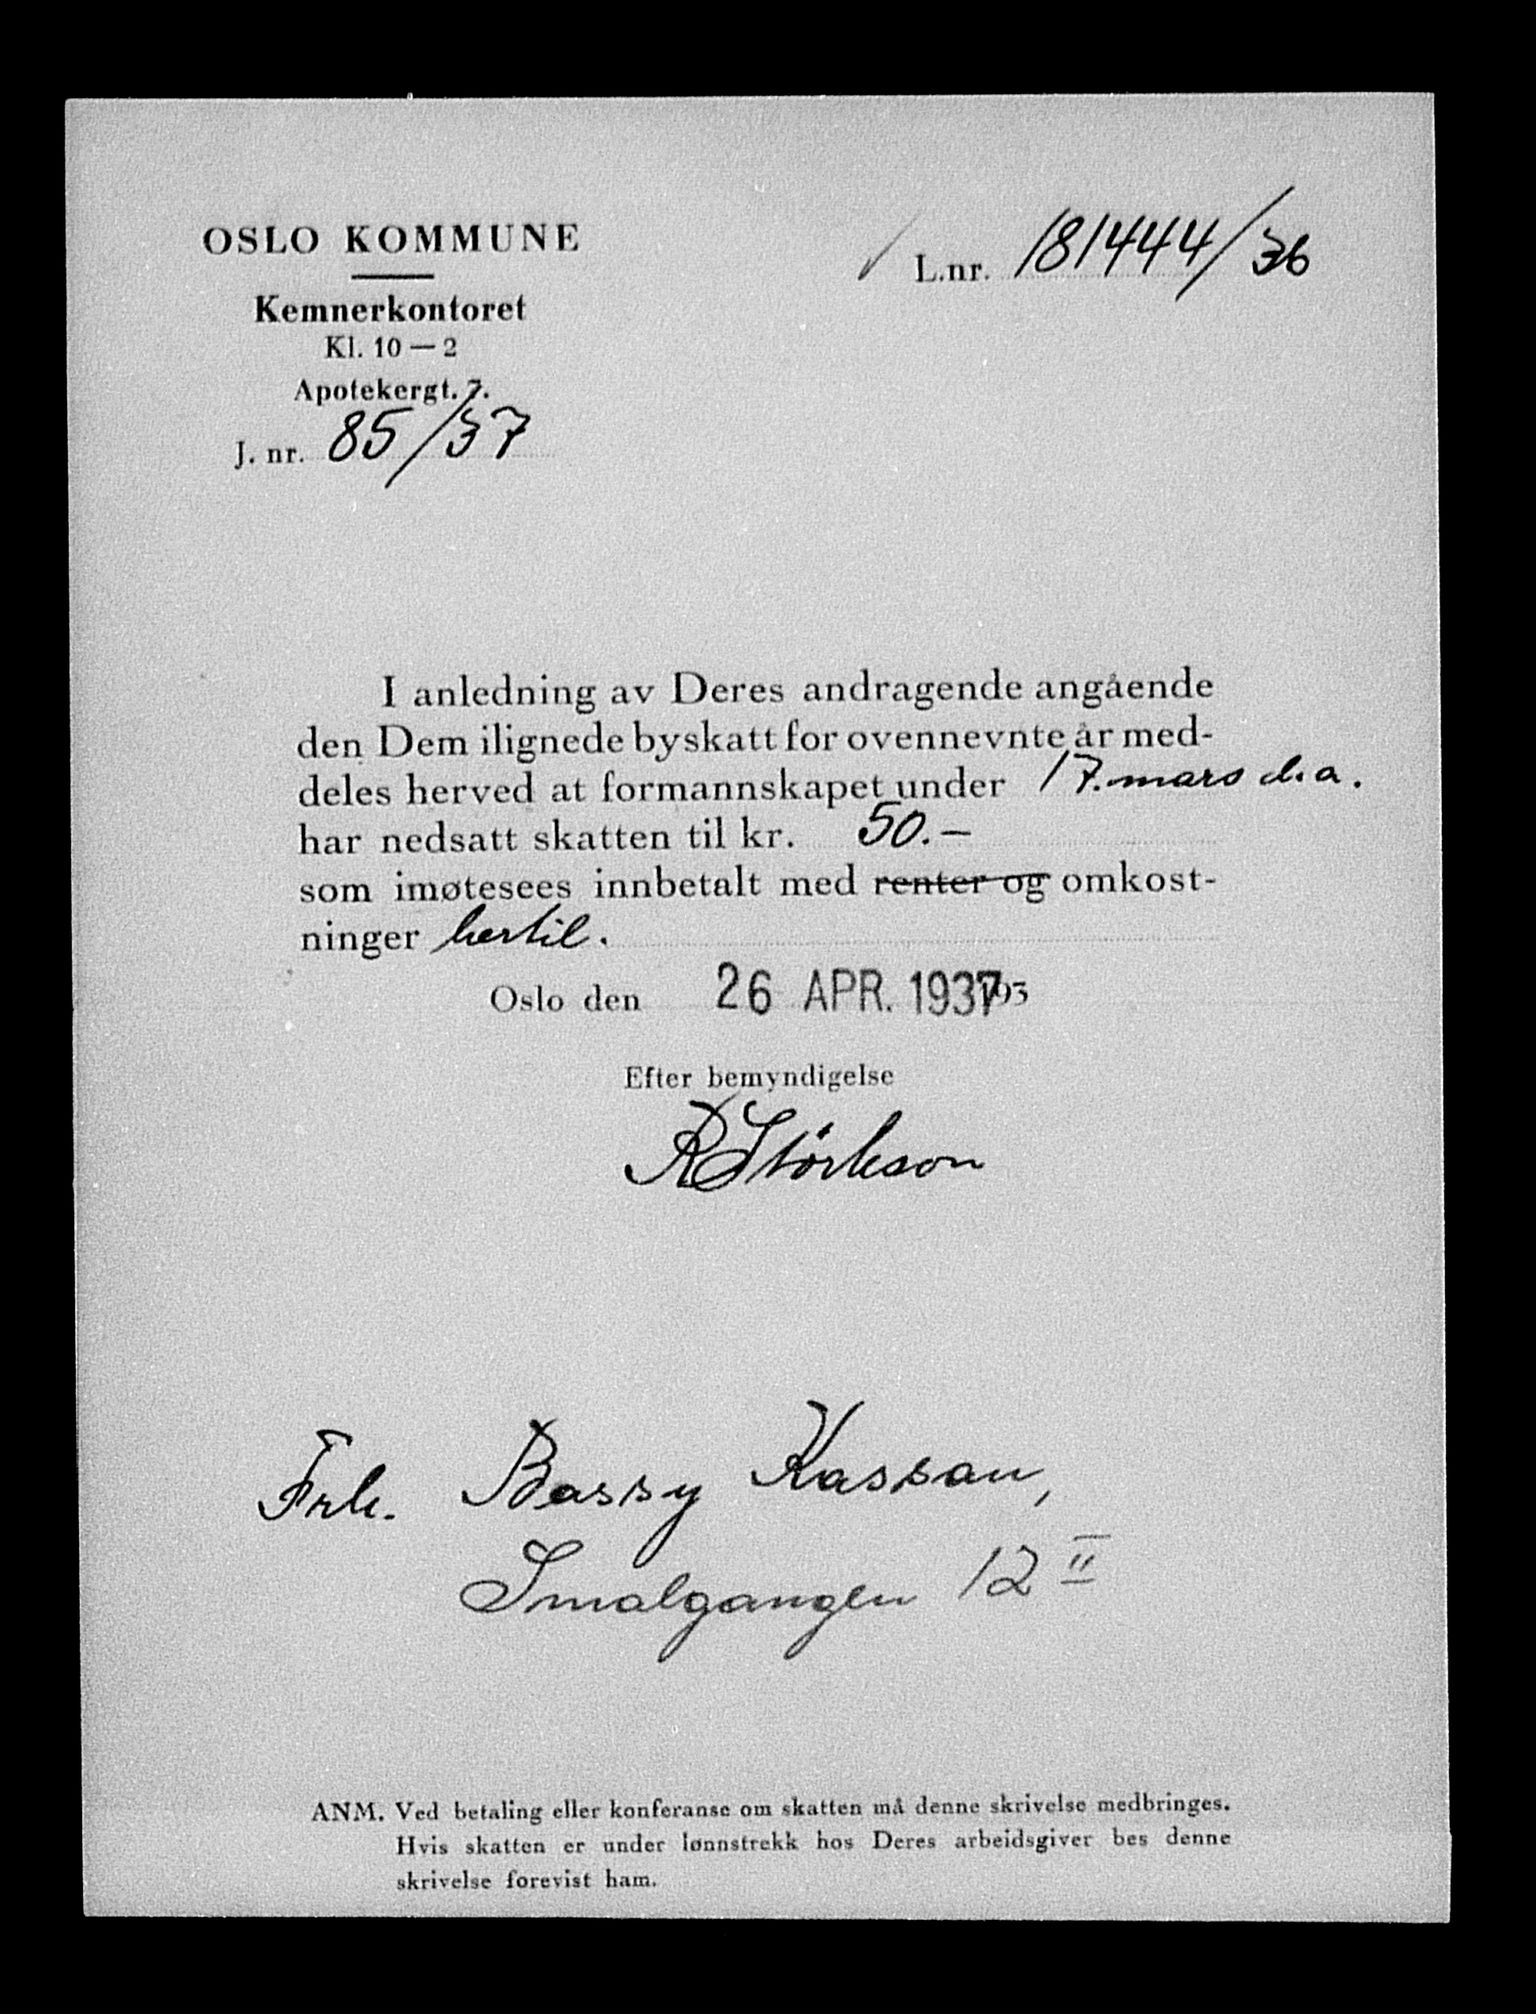 OSLO KOMMUNE
Kemnerkontoret
Kl. 10 — 2
Apotekergt. 7.
J. nr. 85/37
L.nr. 181444/36
I anledning av Deres andragende angående
den Dem ilignede byskatt for ovennevnte år med-
deles herved at formannskapet under 17. mars d.a.
har nedsatt skatten til kr. 50.—
som imøtesees innbetalt med renter og omkost-
ninger hertil.
Oslo den 26 APR. 1937 193
Efter bemyndigelse
R Størkson
Frk. Bassy Kassan,
Smalgangen 12 II
ANM. Ved betaling eller konferanse om skatten må denne skrivelse medbringes.
Hvis skatten er under lønnstrekk hos Deres arbeidsgiver bes denne
skrivelse forevist ham.